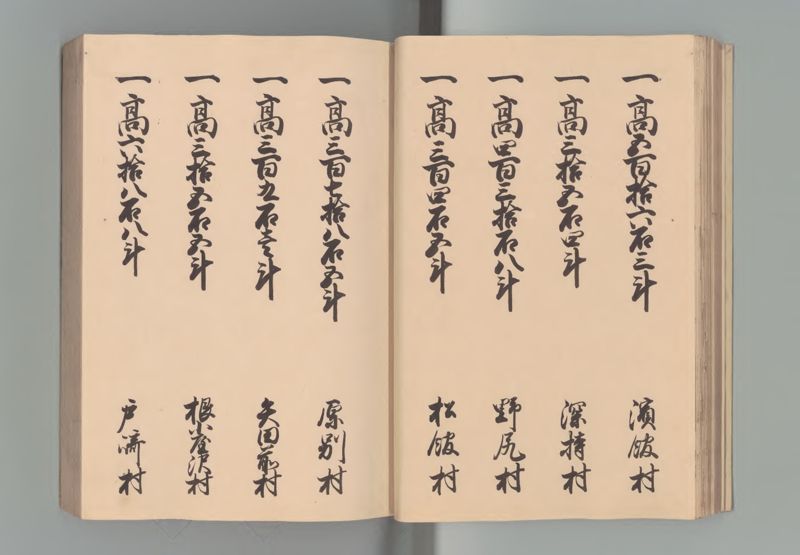 一高五百拾六石三斗 濱舘村
一高三拾五石四斗 深持村
一高四百三拾石八斗 野尻村
一高三百四石五斗 松舘村
一高三百七拾八石五斗 原別村
一高三百五石壱斗 矢田前村
一高三拾五石五斗 村
一高六拾八石八斗 戸崎村